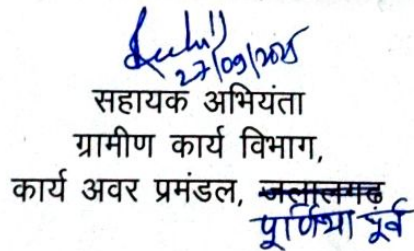 27/09/2025
सहायक अभियंता
ग्रामीण कार्य विभाग,
कार्य अवर प्रमंडल, जलालगढ़
पूर्णिया पूर्व